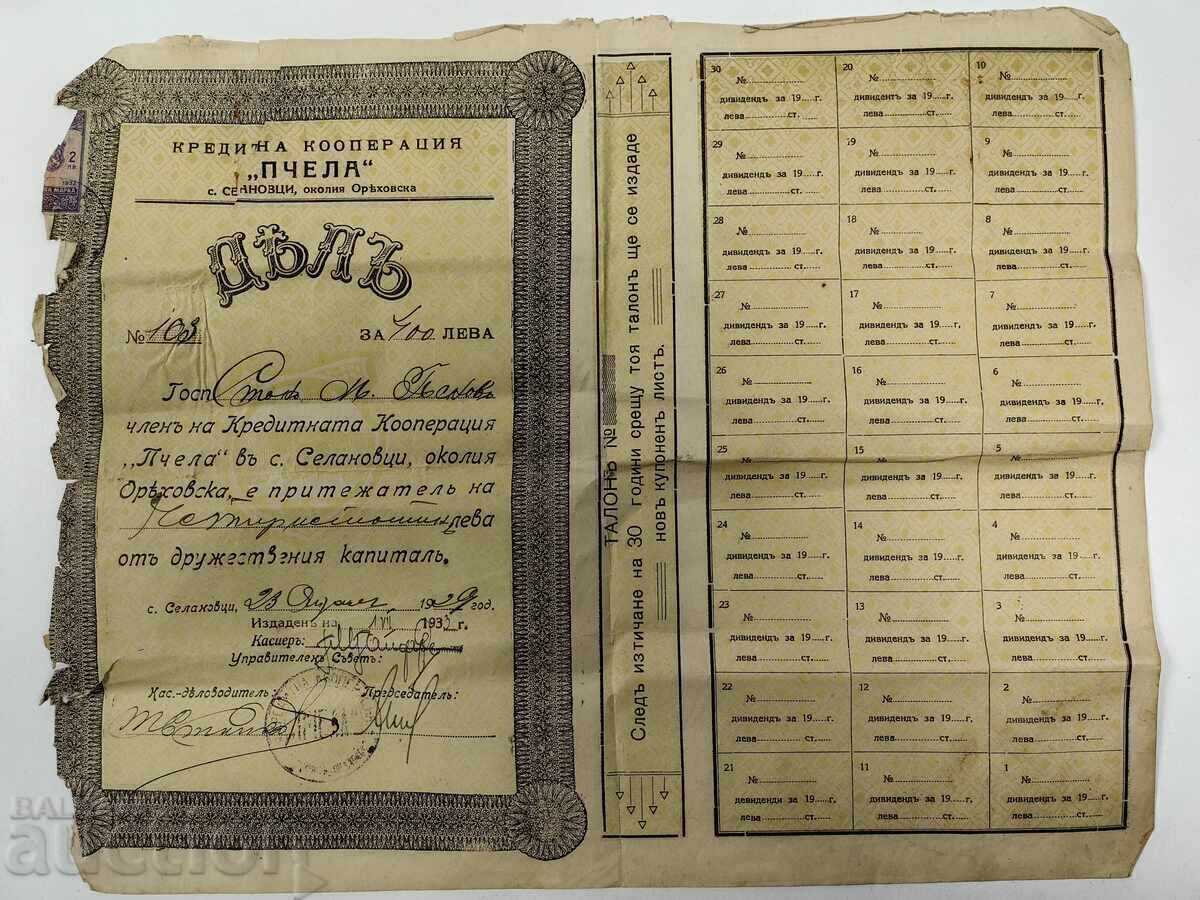 2
ЛВ.
1932
КРЕДИТНА КООПЕРАЦИЯ
„ПЧЕЛА“
с. СЕЛАНОВЦИ, околия Орѣховска
ДѢЛЪ
№ 103 ЗА 400 ЛЕВА
Госп. М.
членъ на Кредитната Кооперация
„Пчела“ въ с. Селановци, околия
Орѣховска, е притежатель на
Четиристотинъ лева
отъ дружествения капиталъ.
с. Селановци, 23 1929 год.
Издаденъ на 1 VII 193 г.
Касиеръ:
Управителенъ Съветъ:
Кас.-дѣловодитель: Председатель:
ТАЛОНЪ №
Следъ изтичане на 30 години срещу тоя талонъ ще се издаде
новъ купоненъ листъ.
30 № дивидендъ за 19.....г. лева ст.
20 № дивидентъ за 19.....г. лева ст.
10 № дивидендъ за 19.....г. лева ст.
29 № дивидендъ за 19.....г. лева ст.
19 № дивидендъ за 19.....г. лева ст.
9 № дивидендъ за 19.....г. лева ст.
28 № дивидендъ за 19.....г. лева ст.
18 № дивидендъ за 19.....г. лева ст.
8 № дивидендъ за 19.....г. лева ст.
27 № дивидендъ за 19.....г. лева ст.
17 № дивидендъ за 19.....г. лева ст.
7 № дивидендъ за 19.....г. лева ст.
26 № дивидендъ за 19.....г. лева ст.
16 № дивидендъ за 19.....г. лева ст.
6 № дивидендъ за 19.....г. лева ст.
25 № дивидендъ за 19.....г. лева ст.
15 № дивидендъ за 19.....г. лева ст.
5 № дивидендъ за 19.....г. лева ст.
24 № дивидендъ за 19.....г. лева ст.
14 № дивидендъ за 19.....г. лева ст.
4 № дивидендъ за 19.....г. лева ст.
23 № дивидендъ за 19.....г. лева ст.
13 № дивидендъ за 19.....г. лева ст.
3 № дивидендъ за 19.....г. лева ст.
22 № дивидендъ за 19.....г. лева ст.
12 № дивидендъ за 19.....г. лева ст.
2 № дивидендъ за 19.....г. лева ст.
21 № девиденди за 19.....г. лева ст.
11 № дивидендъ за 19.....г. лева ст.
1 № дивидендъ за 19.....г. лева ст.
auction